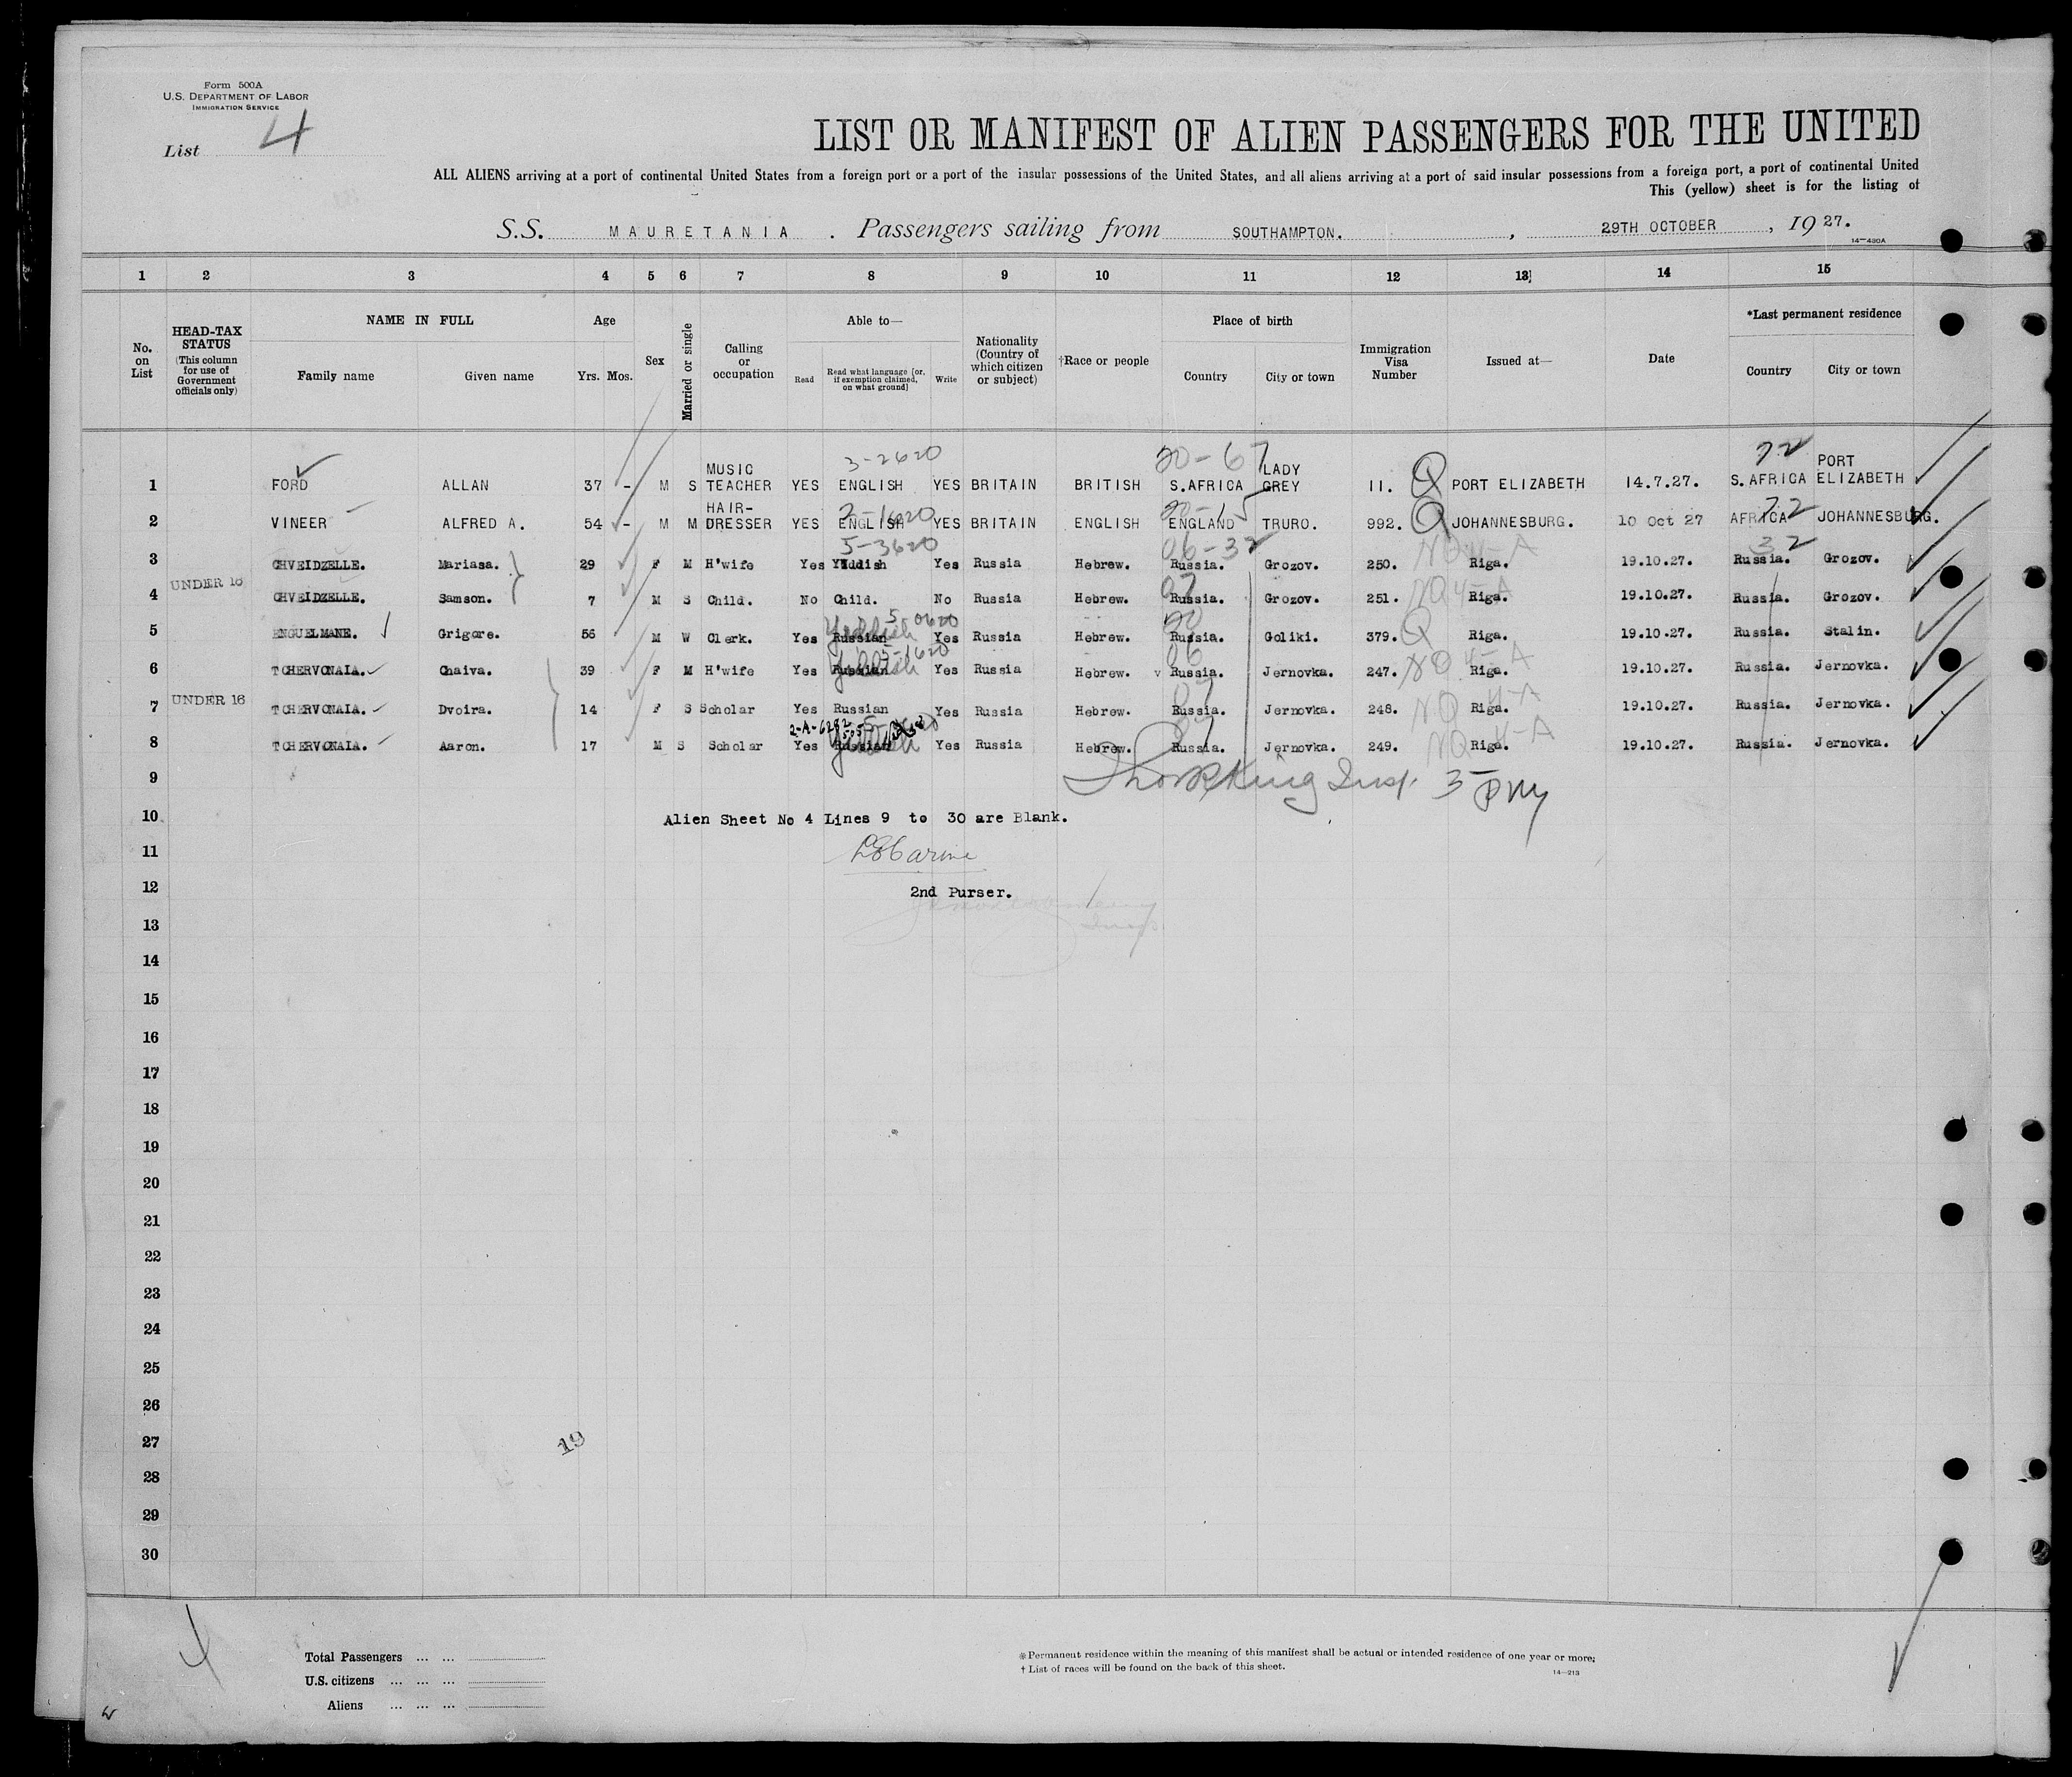 Form 500A
U.S. DEPARTMENT OF LABOR
IMMIGRATION SERVICE
List 4
LIST OR MANIFEST OF ALIEN PASSENGERS FOR THE UNITED
ALL ALIENS arriving at a port of continental United States from a foreign port or a port of the insular possessions of the United States, and all aliens arriving at a port of said insular possessions from a foreign port, a port of continental United
This (yellow) sheet is for the listing of
S.S. MAURETANIA . Passengers sailing from SOUTHAMPTON. , 29TH OCTOBER , 19 27.
14—430A
1 2 3 4 5 6 7 8 9 10 11 12 13 14 15
No. on List
HEAD-TAX STATUS (This column for use of Government officials only)
NAME IN FULL
Family name Given name
Age
Yrs. Mos.
Sex
Married or single
Calling or occupation
Able to—
Read Read what language [or, if exemption claimed, on what ground] Write
Nationality (Country of which citizen or subject)
†Race or people
Place of birth
Country City or town
Immigration Visa Number
Issued at—
Date
*Last permanent residence
Country City or town
3-2620 20-67 72
1 FORD ALLAN 37 - M S MUSIC TEACHER YES ENGLISH YES BRITAIN BRITISH S.AFRICA LADY GREY 11. Q PORT ELIZABETH 14.7.27. S.AFRICA PORT ELIZABETH
2-1620 20-15 72
2 VINEER ALFRED A. 54 - M M HAIR-DRESSER YES ENGLISH YES BRITAIN ENGLISH ENGLAND TRURO. 992. Q JOHANNESBURG. 10 Oct 27 AFRICA JOHANNESBURG.
5-3620 06-32 NQ 4-A 32
3 CHVEIDZELLE. Mariasa. 29 F M H'wife Yes Yiddish Yes Russia Hebrew. Russia. Grozov. 250. Riga. 19.10.27. Russia. Grozov.
UNDER 16
07 NQ 4-A
4 CHVEIDZELLE. Samson. 7 M S Child. No Child. No Russia Hebrew. Russia. Grozov. 251. Riga. 19.10.27. Russia. Grozov.
5-0620 20
5 ENGUELMANE. Grigore. 56 M W Clerk. Yes Russian Yiddish Yes Russia Hebrew. Russia. Goliki. 379. Q Riga. 19.10.27. Russia. Stalin.
5-1620 06 NQ 4-A
6 TCHERVONAIA. Chaiva. 39 F M H'wife Yes Russian Yiddish Yes Russia Hebrew. Russia. Jernovka. 247. Riga. 19.10.27. Russia. Jernovka.
UNDER 16
07 NQ 4-A
7 TCHERVONAIA. Dvoira. 14 F S Scholar Yes Russian Yes Russia Hebrew. Russia. Jernovka. 248. Riga. 19.10.27. Russia. Jernovka.
07 NQ 4-A
8 TCHERVONAIA. Aaron. 17 M S Scholar Yes Russian Yiddish Yes Russia Hebrew. Russia. Jernovka. 249. Riga. 19.10.27. Russia. Jernovka.
9
10 Alien Sheet No 4 Lines 9 to 30 are Blank.
11
12 2nd Purser.
13
14
15
16
17
18
19
20
21
22
23
24
25
26
27 19
28
29
30
Total Passengers ... ...
U.S. citizens ... ... ...
Aliens ... ... ...
*Permanent residence within the meaning of this manifest shall be actual or intended residence of one year or more.
† List of races will be found on the back of this sheet.
14—213